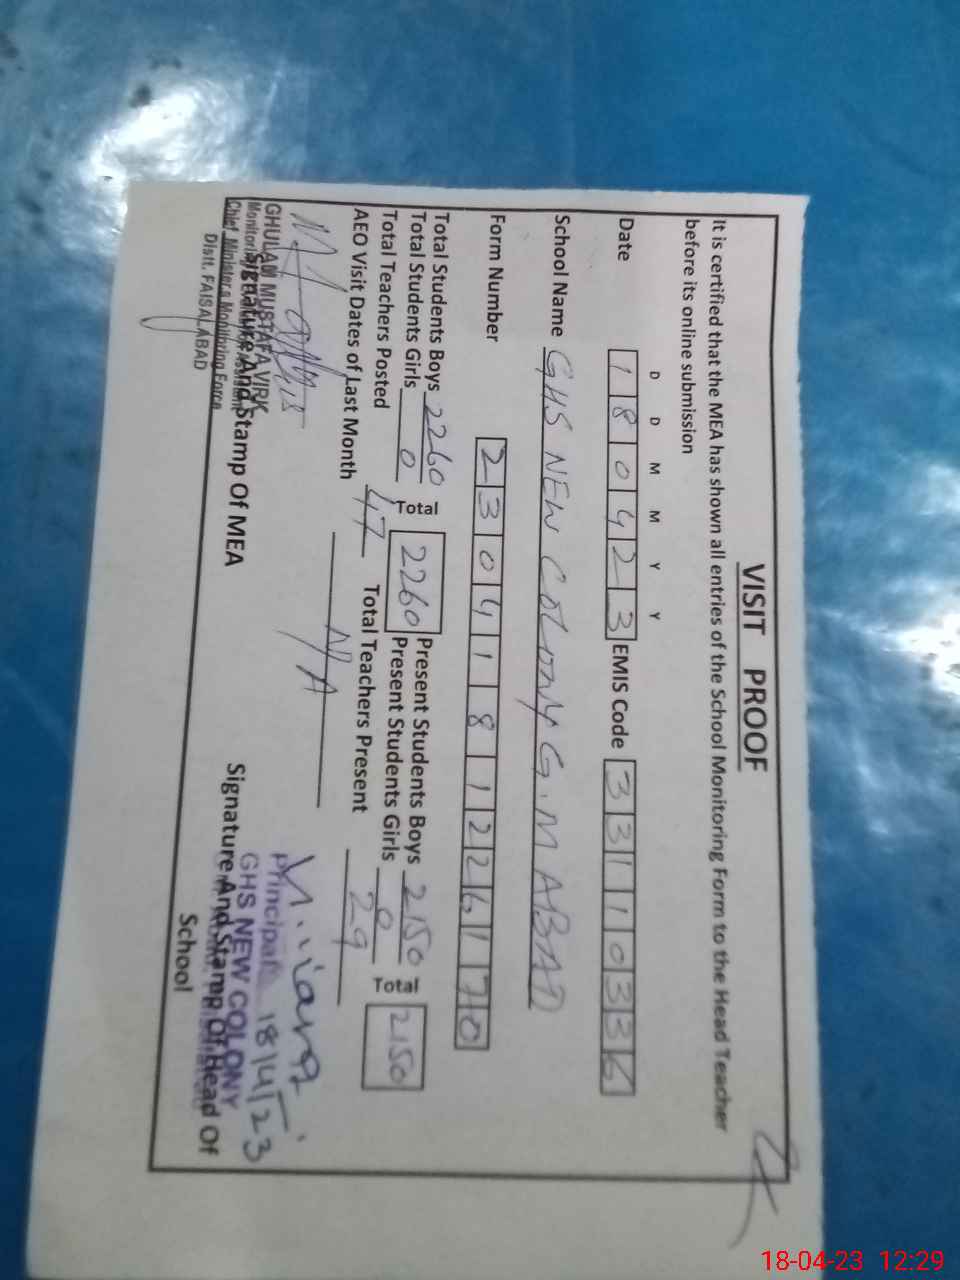 VISIT PROOF
It is certified that the MEA has shown all entries of the School Monitoring Form to the Head Teacher
before its online submission
D D M M Y Y
Date 1 8 0 4 2 3 EMIS Code 3 3 1 1 0 3 3 6
School Name GHS NEW COLONY G.M ABAD
Form Number 2 3 0 4 1 8 1 2 2 6 1 7 0
Total Students Boys 2260 Total 2260 Present Students Boys 2150 Total 2150
Total Students Girls 0 Present Students Girls 0
Total Teachers Posted 47 Total Teachers Present 29
AEO Visit Dates of Last Month N/A
GHULAM MUSTAFA VIRK
Chief Minister's Monitoring Force
Distt. FAISALABAD
Signature And Stamp Of MEA
Principal 18/4/23
GHS NEW COLONY
Signature And Stamp Of Head Of
School
18-04-23 12:29